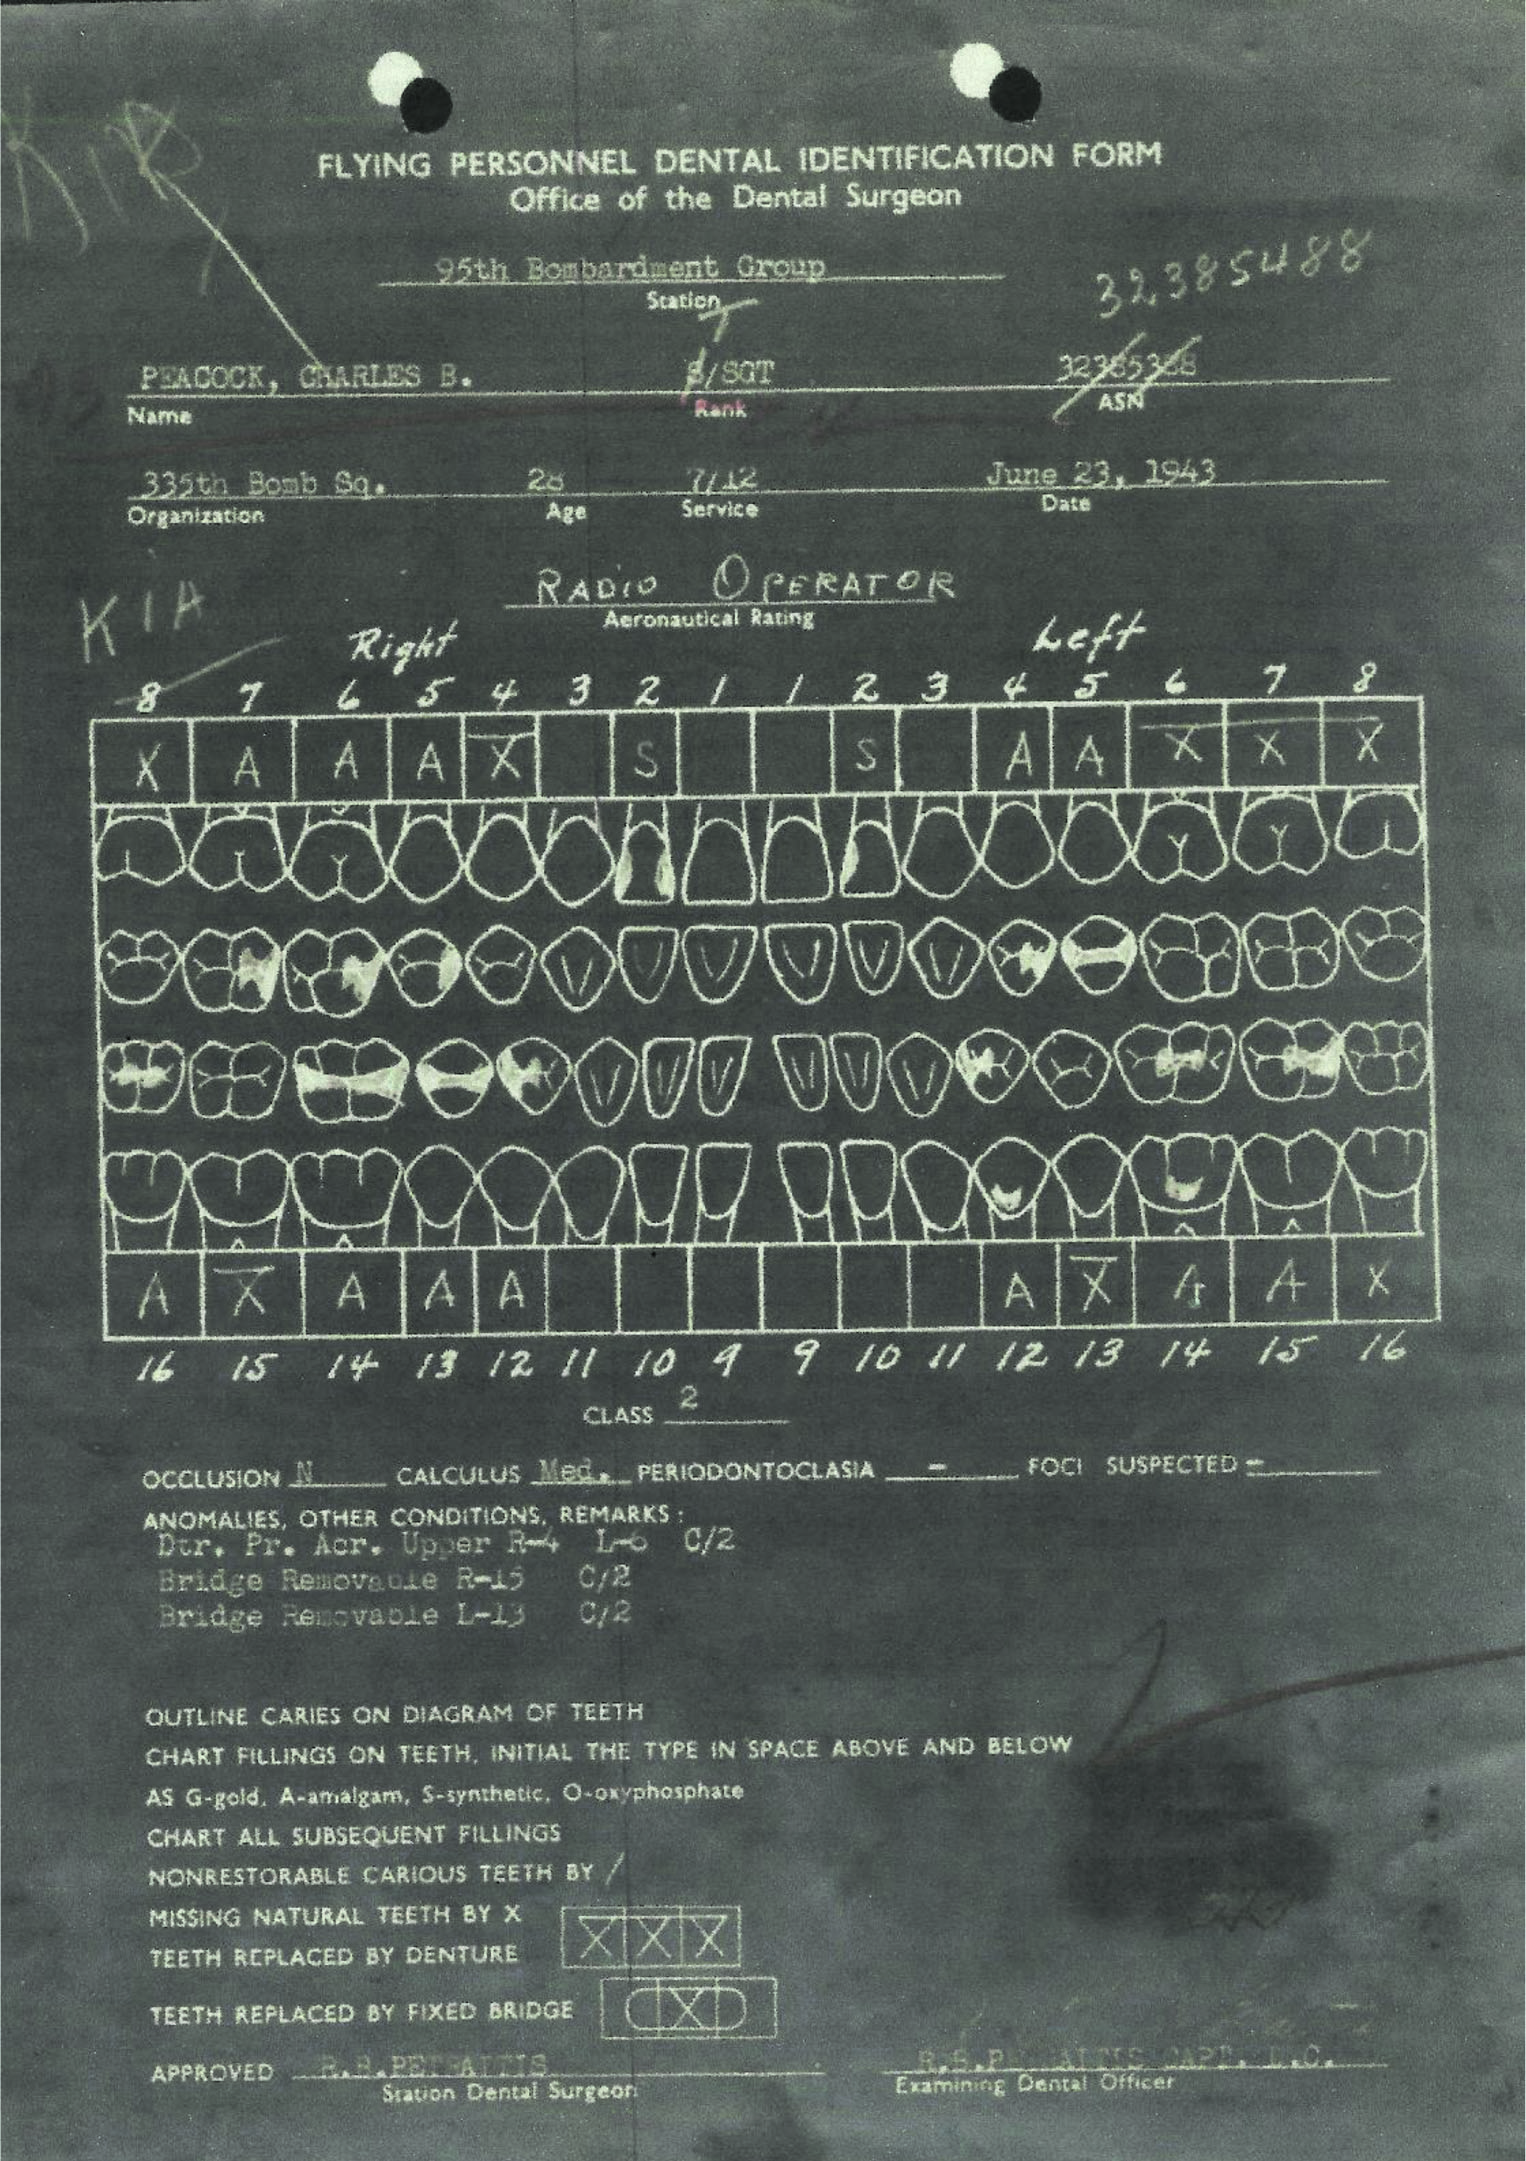 FLYING PERSONNEL DENTAL IDENTIFICATION FORM
Office of the Dental Surgeon
95th Bombardment Group
Station
32385488
T
PEACOCK, CHARLES B. S/SGT
Name Rank ASN
335th Bomb Sq. 28 7/12 June 23, 1943
Organization Age Service Date
RADIO OPERATOR
Aeronautical Rating
KIA
Right Left
8 7 6 5 4 3 2 1 1 2 3 4 5 6 7 8
X A A A X S S A A X X X
A X A A A A X A A X
16 15 14 13 12 11 10 9 9 10 11 12 13 14 15 16
CLASS 2
OCCLUSION N CALCULUS Med. PERIODONTOCLASIA - FOCI SUSPECTED -
ANOMALIES, OTHER CONDITIONS, REMARKS :
Dtr. Pr. Acr. Upper R-4 L-6 C/2
Bridge Removable R-15 C/2
Bridge Removable L-13 C/2
OUTLINE CARIES ON DIAGRAM OF TEETH
CHART FILLINGS ON TEETH, INITIAL THE TYPE IN SPACE ABOVE AND BELOW
AS G-gold, A-amalgam, S-synthetic, O-oxyphosphate
CHART ALL SUBSEQUENT FILLINGS
NONRESTORABLE CARIOUS TEETH BY /
MISSING NATURAL TEETH BY X
X X X
TEETH REPLACED BY DENTURE
TEETH REPLACED BY FIXED BRIDGE X
APPROVED R.S.PETRAITIS R.S.PETRAITIS CAPT. D.C.
Station Dental Surgeon Examining Dental Officer